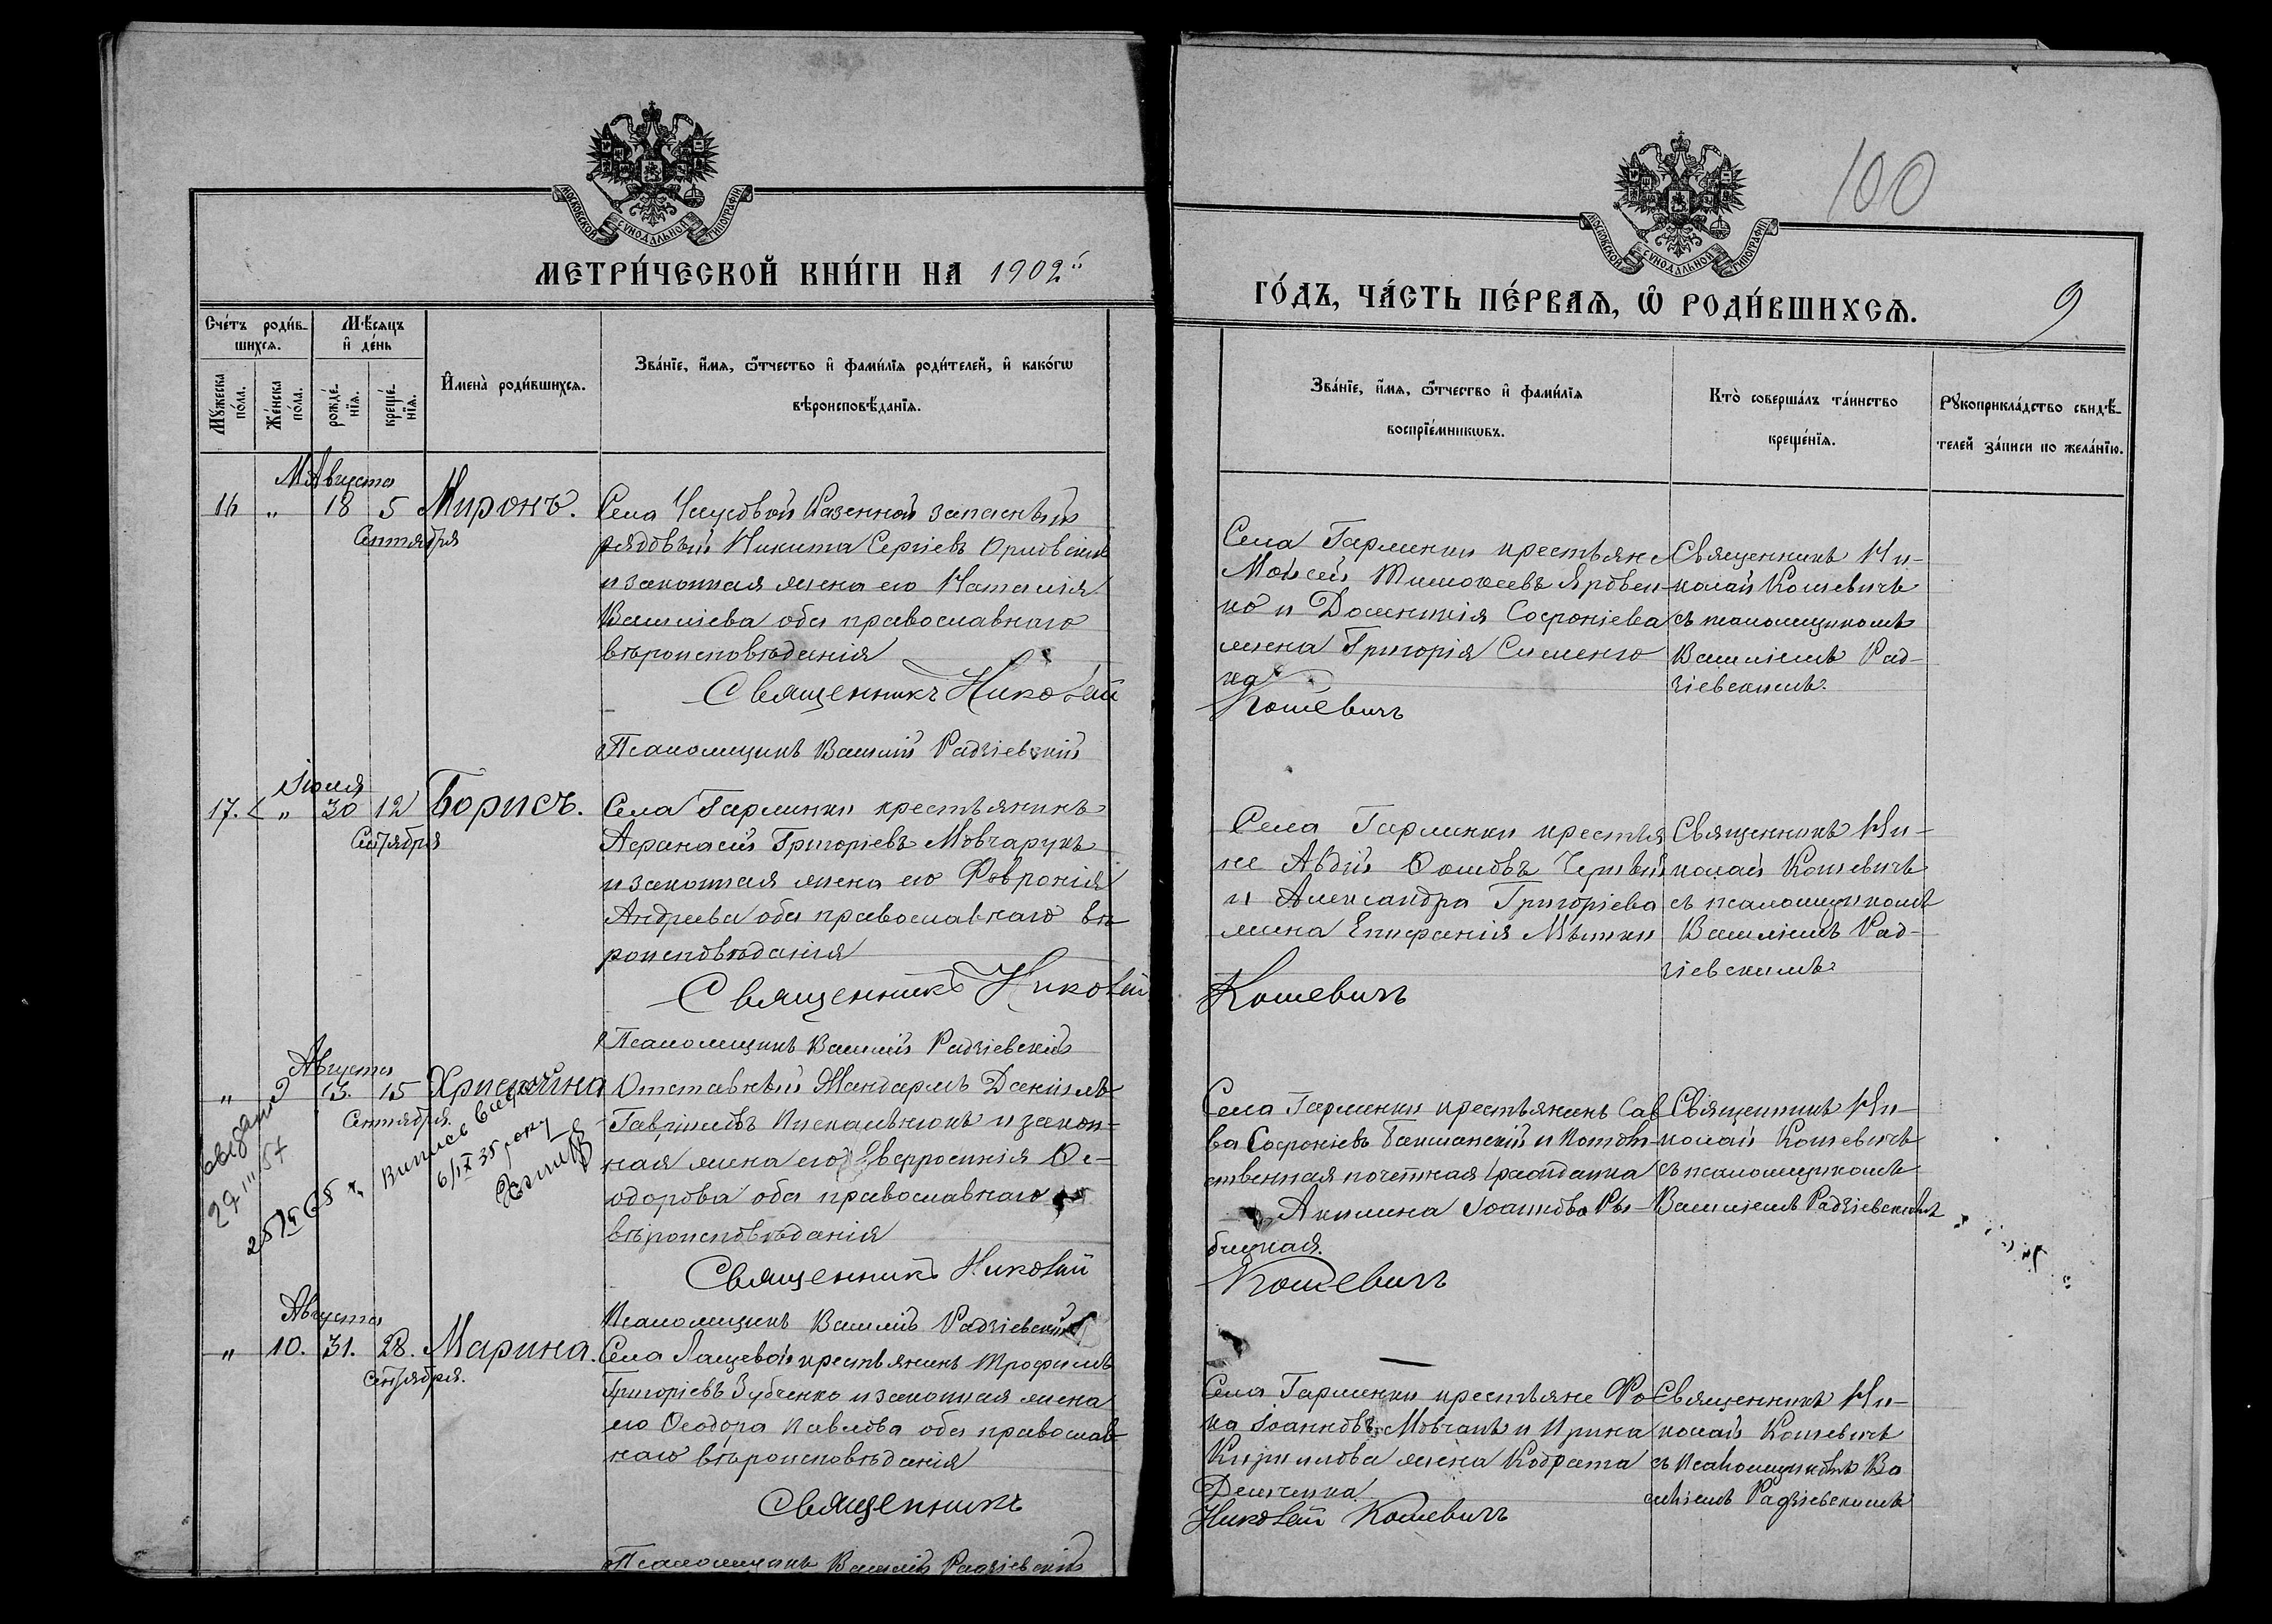 МОСКОВСКОЙ СУНОДАЛЬНОЙ ТИПОГРАФІИ
МЕТРИ́ЧЕСКОЙ КНИ́ГИ НА 1902й
Сче́тъ роди́в-
шихсѧ.
Мѣ́сѧцъ
и҆ де́нь
Мꙋ́жеска
по́ла.
Же́нска
по́ла.
рожде́-
нїѧ.
креще́-
нїѧ.
И҆мена̀ роди́вшихсѧ.
Зва́нїе, и҆́мѧ, ѻ҆́тчество и҆ фами́лїѧ роди́телей, и҆ како́гѡ
вѣроисповѣ́данїѧ.
Августа
16 " 18 5 Миронъ.
Сентября
Села Казенной запасный
рядовый Никита Сергіевъ Орловскій
и законная жена его Наталія
Василіева оба православнаго
вѣроисповѣданія
Священникъ Николай
Псаломщикъ Василій Радзіевскій
Іюля
17. " 30 12 Борисъ.
Сентября
Села Гарминки крестьянинъ
Афанасій Григоріевъ Мовчарукъ
и законная жена его Февронія
Андреева оба православнаго вѣ
роисповѣданія
Священникъ Николай
Псаломщикъ Василій Радзіевскій
Августа
" 9 13. 15 Христина
Сентября.
Отставный Жандармъ Даніилъ
Гавріиловъ и закон-
ная жена его Евфросинія Ѳе-
одорова оба православнаго
вѣроисповѣданія
29 III 57
Випись
6/IX 35 року
Священникъ Николай
Псаломщикъ Василій Радзіевскій
Августа
" 10. 31. 28. Марина.
Сентября.
Села Лащевой крестьянинъ Трофимъ
Григоріевъ Зубченко и законная жена
его Ѳеодора Павлова оба православ
наго вѣроисповѣданія
Священникъ
Псаломщикъ Василій Радзіевскій
100
МОСКОВСКОЙ СУНОДАЛЬНОЙ ТИПОГРАФІИ
ГО́ДЪ, ЧА́СТЬ ПЕ́РВАѦ, Ѽ РОДИ́ВШИХСѦ.
9
Зва́нїе, и҆́мѧ, ѻ҆́тчество и҆ фами́лїѧ
воспрїе́мникѡвъ.
Кто̀ соверша́лъ та́инство
креще́нїѧ.
Рꙋкоприкла́дство свидѣ́-
телей за́писи по жела́нїю.
Села Гарминки крестьяне
Моисей Тимоѳеевъ Яровен-
ко и Домникія Софроніева
жена Григорія Сименю
ка
Кошевичъ
Священникъ Ни-
колай Кошевичъ
съ псаломщикомъ
Василіемъ Рад-
зіевскимъ.
Села Гарминки крестья
не Авдій Ѳомовъ
и Александра Григоріева
жена Епифанія
Кошевичъ
Священникъ Ни-
колай Кошевичъ
съ псаломщикомъ
Василіемъ Рад-
зіевскимъ
Села Гарминки крестьянинъ Сав
ва Софроніевъ и Потом-
ственная почетная гражданка
Акилина Іоаннова Ры-
бицкая.
Кошевичъ
Священникъ Ни-
колай Кошевичъ
съ псаломщикомъ
Василіемъ Радзіевскимъ
Села Гарминки крестьяне Фо
ка Іоанновъ Мовчанъ и Ирина
Кириллова жена Кодрата
Николай Кошевичъ
Священникъ Ни-
колай Кошевичъ
съ псаломщикомъ Ва
силіемъ Радзіевскимъ